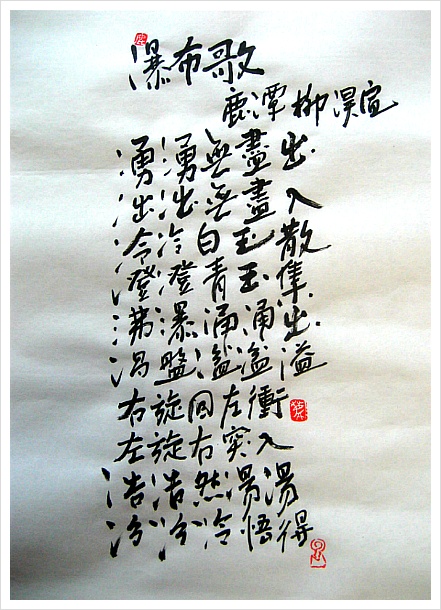 瀑布歌
鹿潭 柳淏宣
湧湧無盡出
出出無盡入
冷冷白玉散
澄澄青玉隼
沸瀑涌涌出
渦盤濫溢溢
右旋回左衝
左旋右突入
浩浩然湯湯
冷悟得